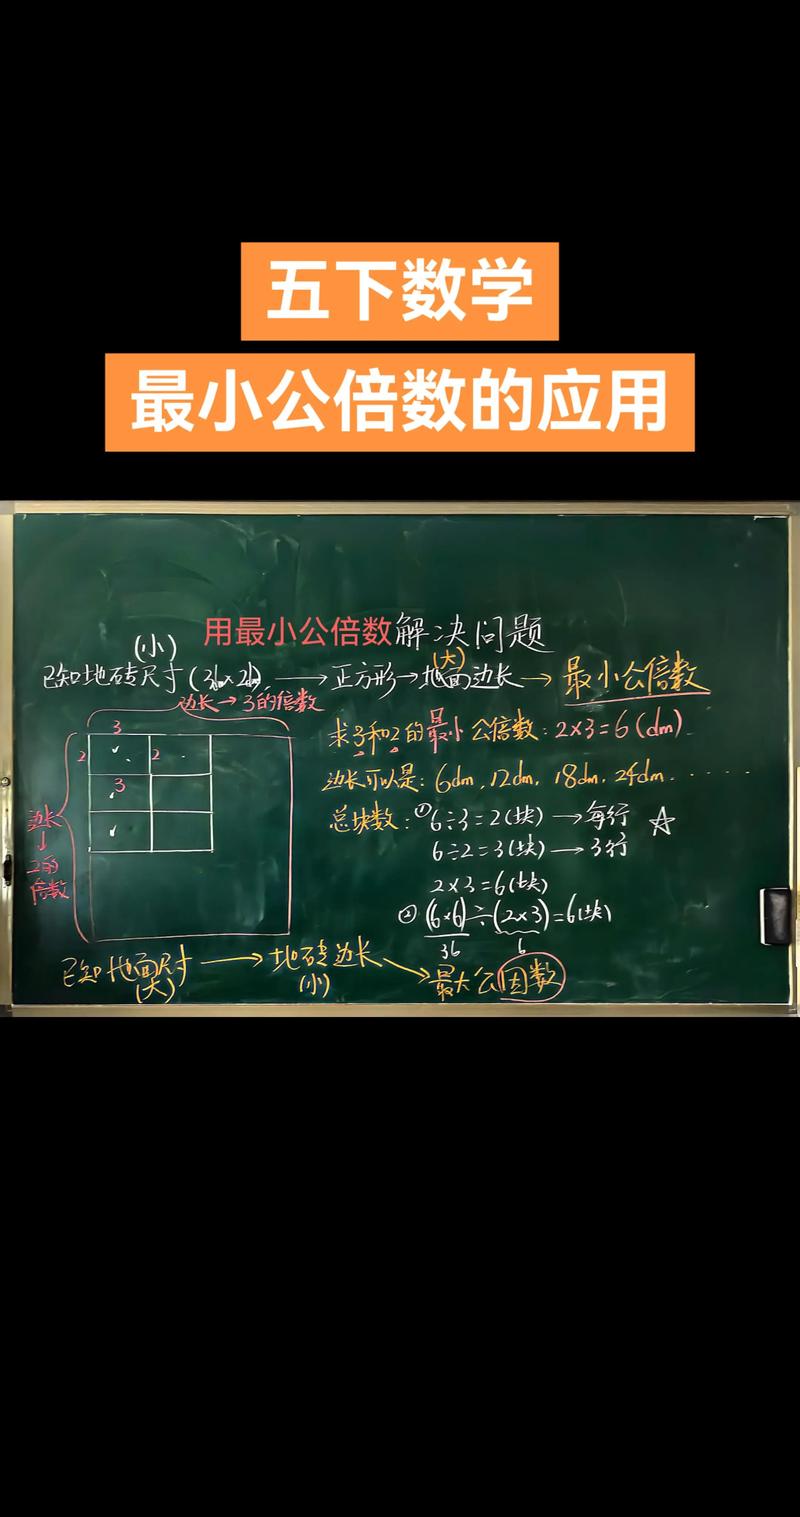 五下数学
最小公倍数的应用
用最小公倍数解决问题
(小)
(大)
已知地砖尺寸(3dm×2dm) → 正方形→地面边长→ 最小公倍数
边长→3的倍数
3
2
2
3
边长
↓
2的
倍数
求3和2的最小公倍数:2×3=6(dm)
边长可以是:6dm,12dm,18dm,24dm......
总块数:①6÷3=2(块)→每行 ☆
6÷2=3(块)→3行
2×3=6(块)
②(6×6)÷(2×3)=6(块)
36 6
已知地面尺寸→地砖边长→最大公因数
(大) (小)